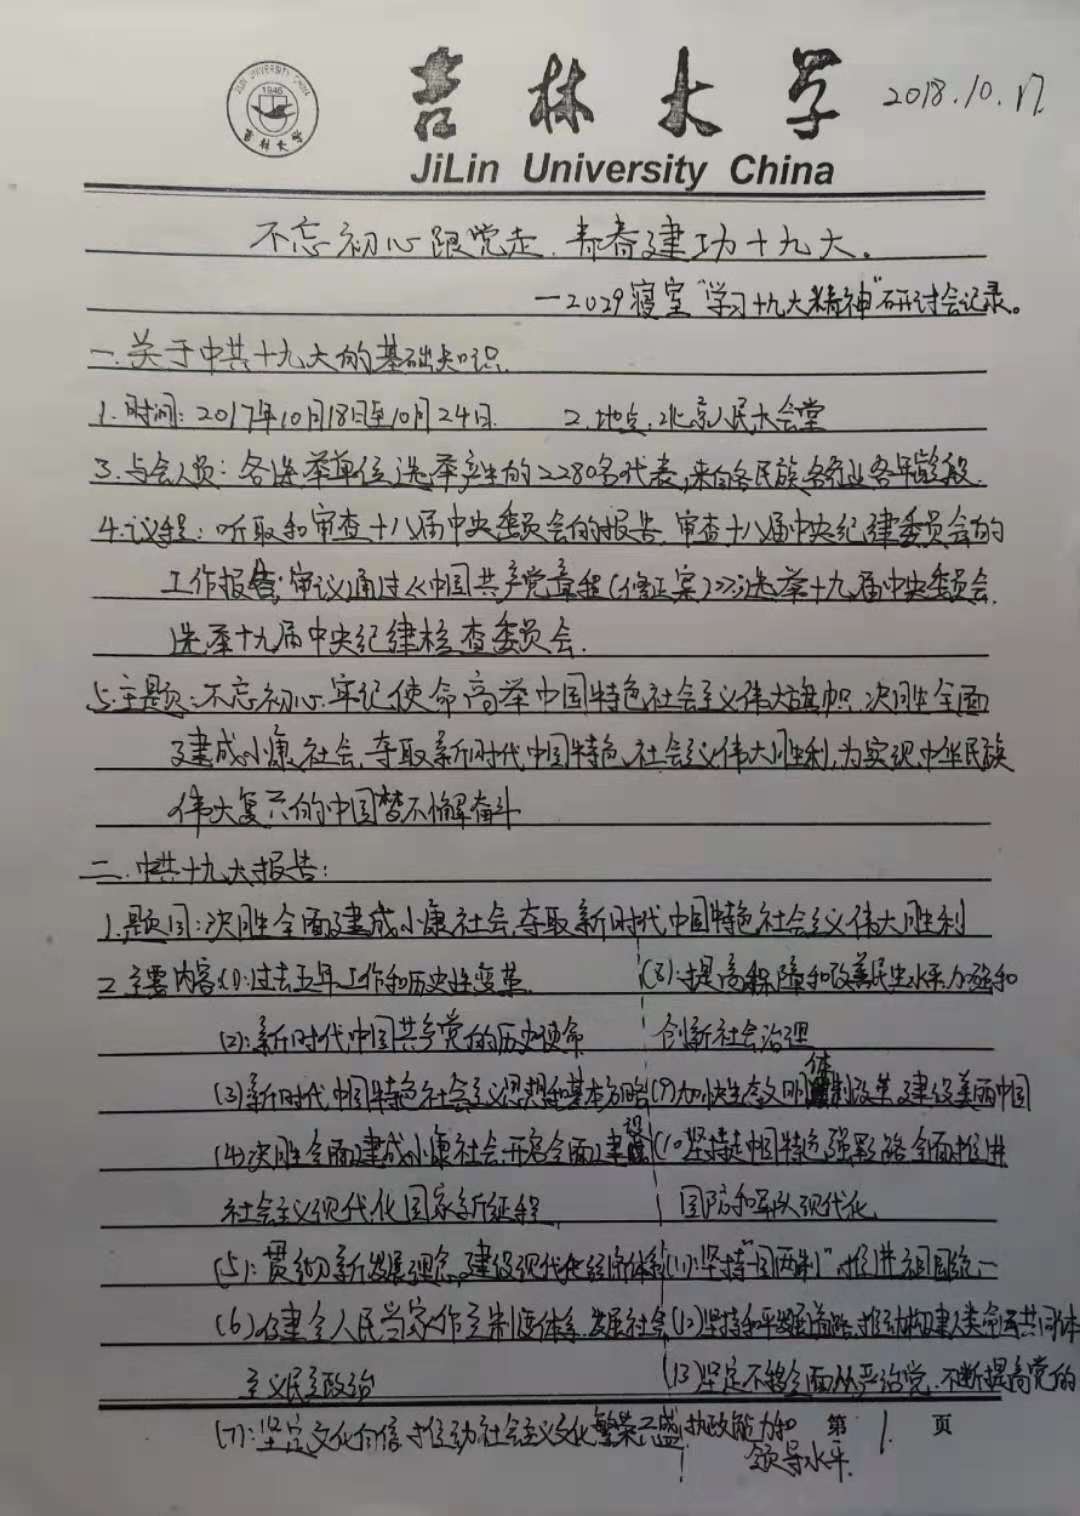 JILIN UNIVERSITY CHINA
1946
吉林大学
吉林大学
JiLin University China
2018.10.17.
不忘初心跟党走.青春建功十九大。
—2029寝室"学习十九大精神"研讨会记录。
一.关于中共十九大的基础知识.
1.时间:2017年10月18日至10月24日. 2.地点:北京人民大会堂
3.与会人员:各选举单位选举产生的2280名代表,来自各民族各行业各年龄段.
4.议程:听取和审查十八届中央委员会的报告.审查十八届中央纪律委员会的
工作报告;审议通过《中国共产党章程(修正案)》;选举十九届中央委员会.
选举十九届中央纪律检查委员会.
5.主题:不忘初心.牢记使命.高举中国特色社会主义伟大旗帜.决胜全面
建成小康社会.夺取新时代中国特色社会主义伟大胜利,为实现中华民族
伟大复兴的中国梦不懈奋斗
二.中共十九大报告:
1.题目:决胜全面建成小康社会.夺取新时代中国特色社会主义伟大胜利
2.主要内容(1):过去五年工作和历史性变革.
(2):新时代中国共产党的历史使命
(3)新时代中国特色社会主义思想和基本方略
(4)决胜全面建成小康社会.开启全面建设
社会主义现代化国家新征程
(5):贯彻新发展理念.建设现代化经济体系
(6)健全人民当家作主制度体系.发展社会
主义民主政治
(7):坚定文化自信.推动社会主义文化繁荣兴盛
(8):提高保障和改善民生水平.加强和
创新社会治理
(9)加快生态文明体制改革.建设美丽中国
(10坚持走中国特色强军路.全面推进
国防和军队现代化
(11):坚持"一国两制".推进祖国统一
(12)坚持和平发展道路.推动构建人类命运共同体
(13)坚定不移全面从严治党.不断提高党的
执政能力和
领导水平.
第 1. 页